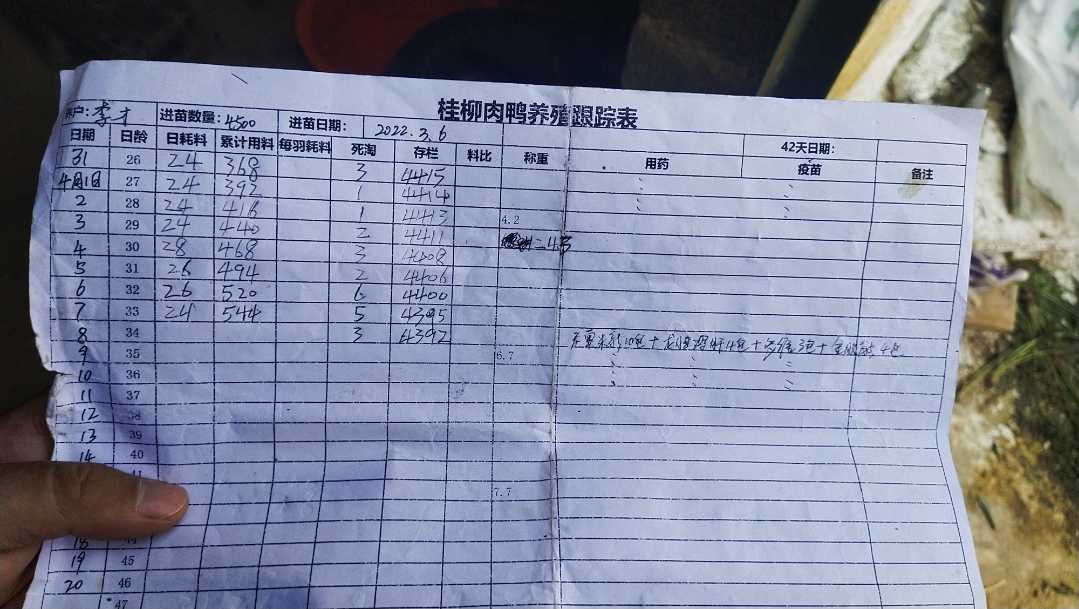 桂柳肉鸭养殖跟踪表
养户: 李才 进苗数量: 4500 进苗日期: 2022.3.6 42天日期:
日期 日龄 日耗料 累计用料 每羽耗料 死淘 存栏 料比 称重 用药 疫苗 备注
31 26 24 368 3 4415
4月1日 27 24 392 1 4414
2 28 24 416 1 4413 4.2
3 29 24 440 2 4411
4 30 28 468 3 4408
5 31 26 494 2 4406
6 32 26 520 6 4400
7 33 24 544 5 4395
8 34 3 4392
9 35 6.7
10 36
11 37
12 38
13 39
14 40
41
7.7
18 44
19 45
20 46
47